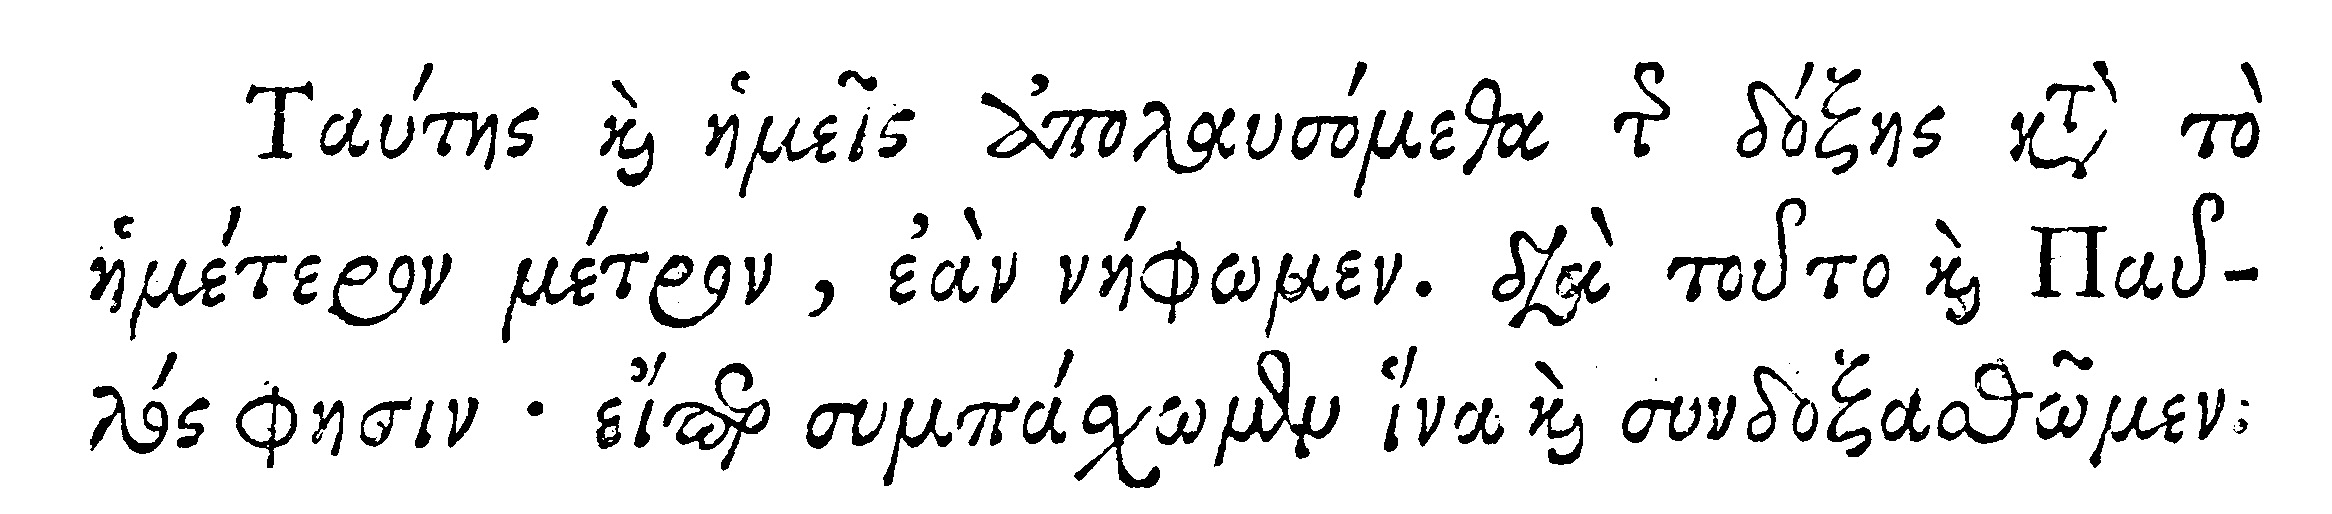 Ταύτης καὶ ἡμεῖς ἀπολαυσόμεθα τῆς δόξης κατὰ τὸ
ἡμέτερον μέτρον, ἐὰν νήφωμεν. διὰ τοῦτο καὶ Παῦ-
λός φησιν · εἴπερ συμπάσχωμεν ἵνα καὶ συνδοξασθῶμεν.